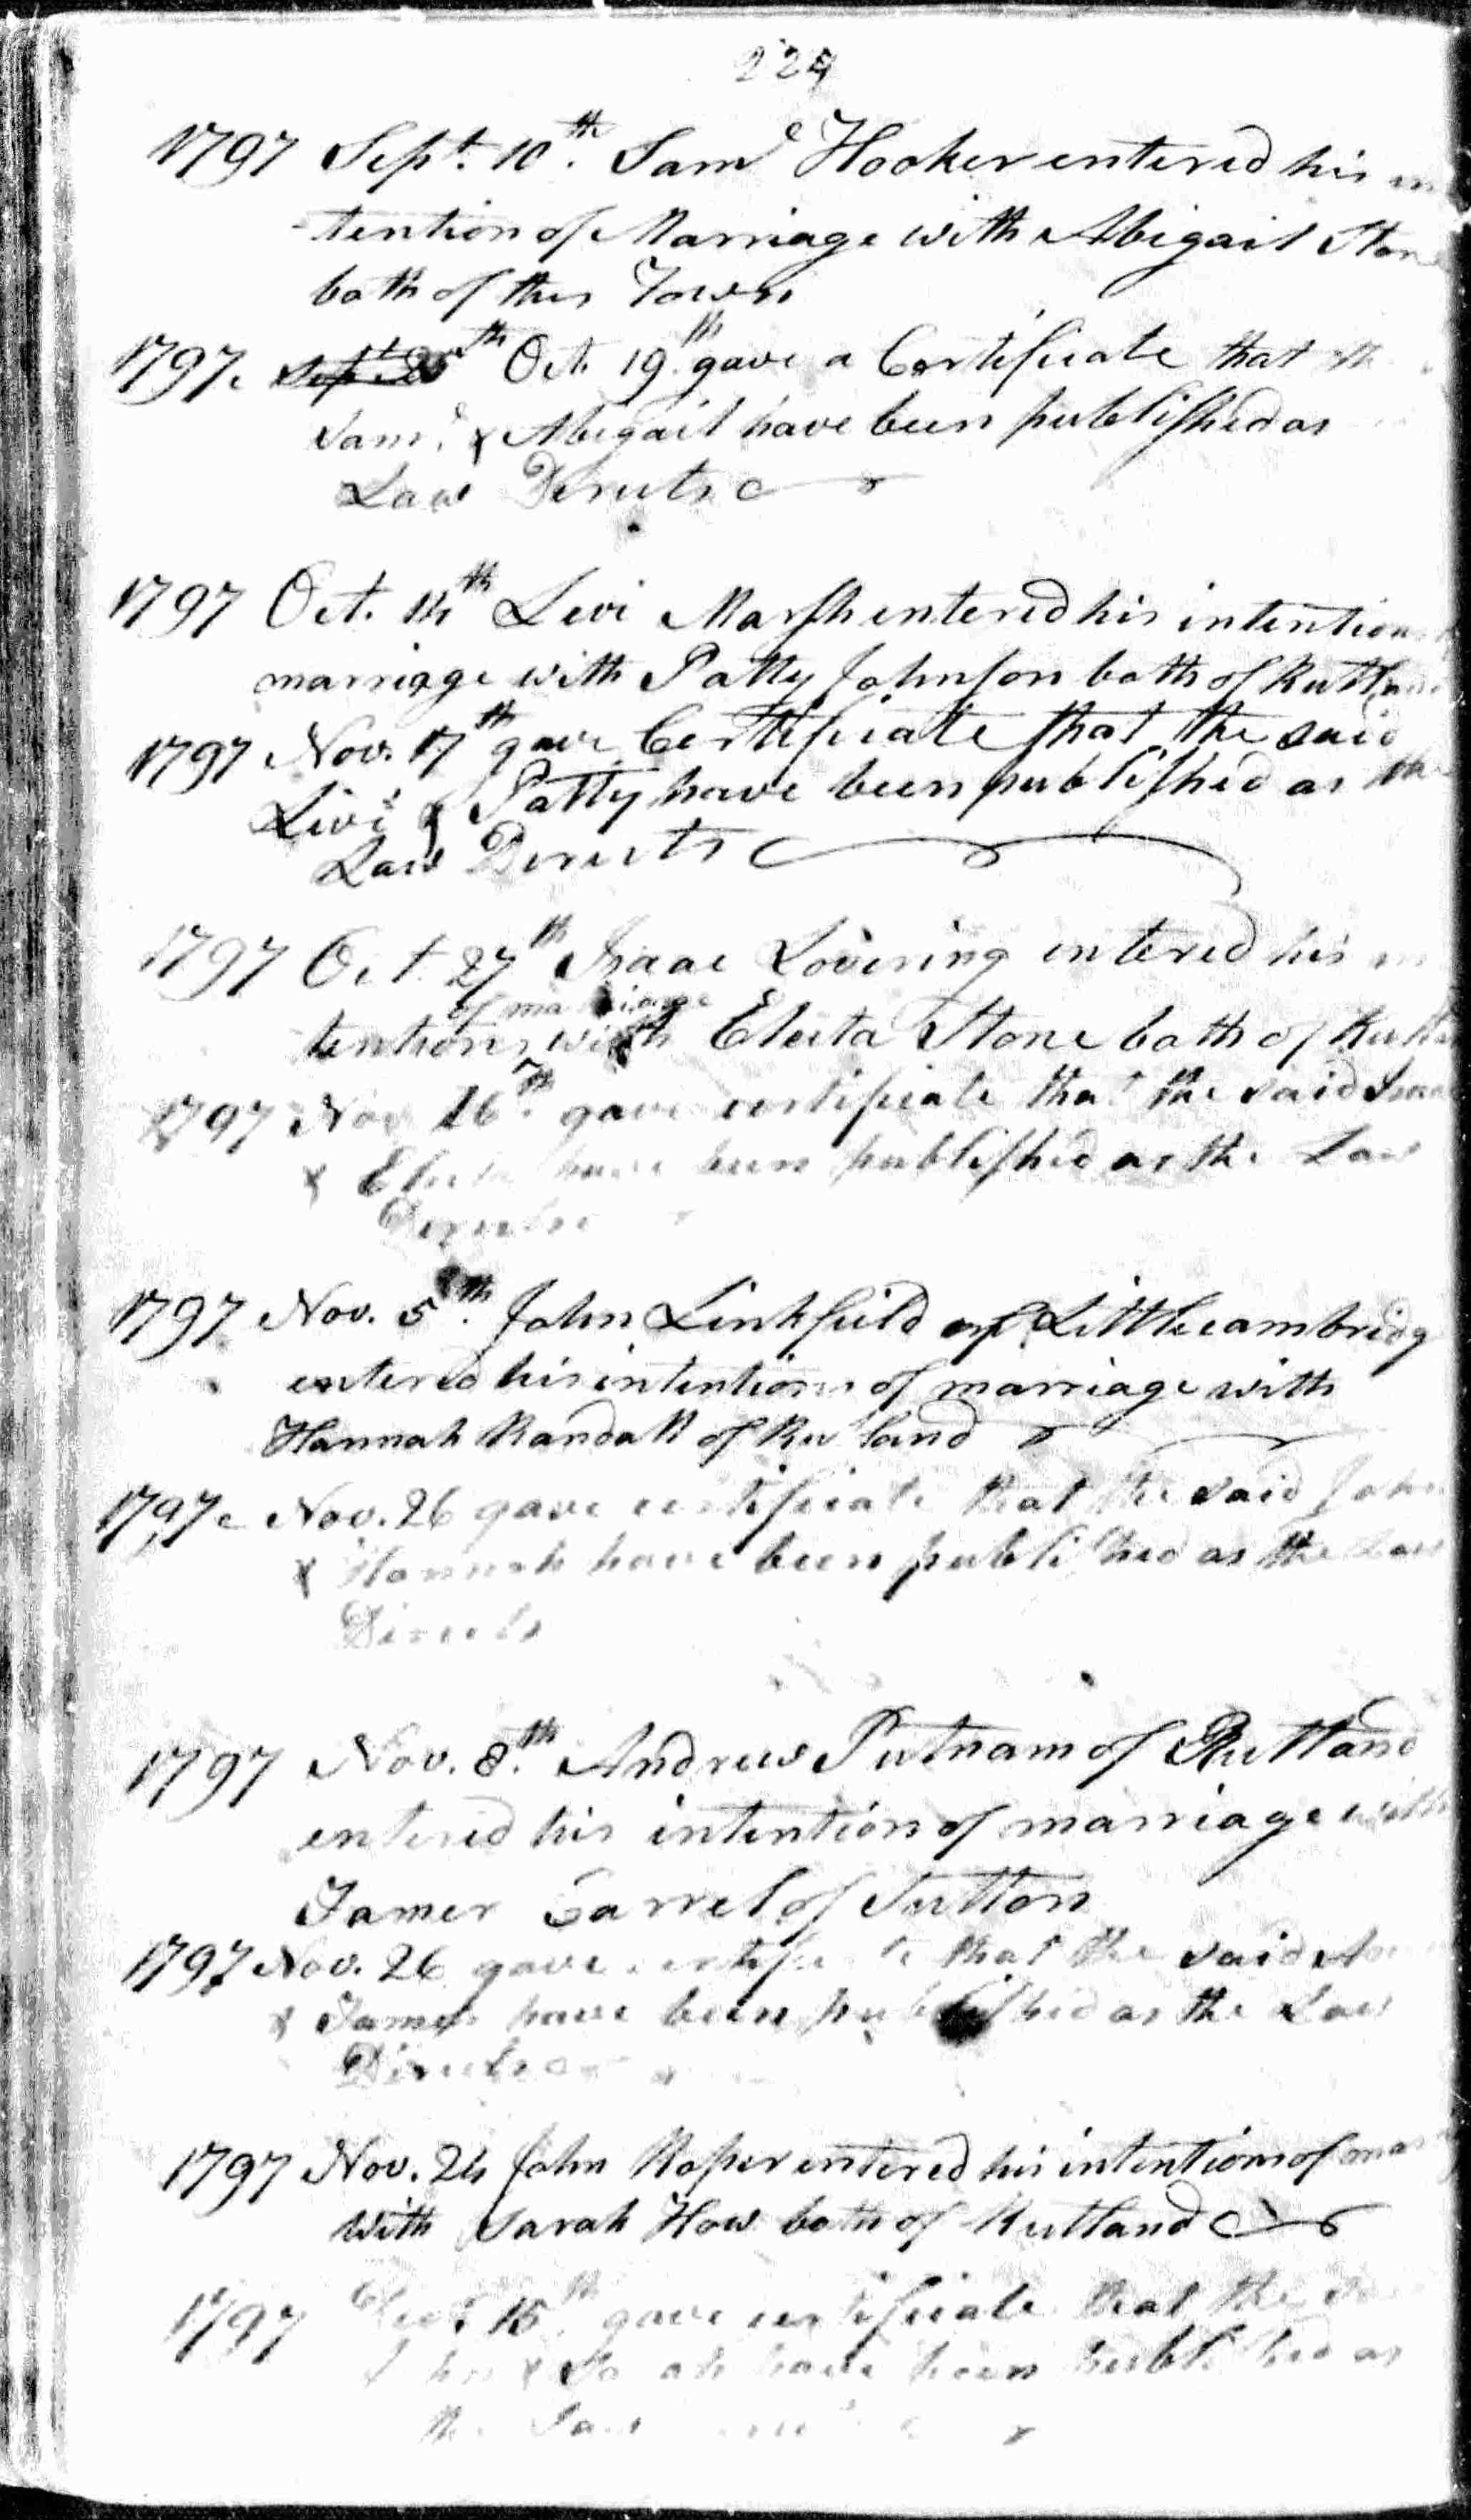 224
1797 Sept. 10th. Saml Hooker entered his in
-tention of Marriage with Abigail Stone
both of this Town
1797. Sept 25th Oct. 19th. gave a Certificate that the
Saml. & Abigail have been published as
Law Directs
1797 Oct. 14th Levi Marsh entered his intention
marriage with Patty Johnson both of Rutland
1797 Nov. 17th gave Certificate that the said
Levi & Patty have been published as the
Law Directs
1797 Oct. 27th Isaac Lovering entered his in
of marriage
tentions with Electa Stone both of Rutla
1797 Nov 16th. gave certificate that the said Isaac
& Electa have been published as the Law
Directs
1797 Nov. 5th. John Linkfield of Littlecambridg
entered his intentions of marriage with
Hannah Randall of Rutland
1797 Nov. 26 gave certificate that the said John
& Hannah have been published as the Law
Directs
1797 Nov. 8th. Andrew Putnam of Rutland
entered his intention of marriage with
Tamer Garrel of Sutton
1797 Nov. 26 gave certificate that the said An
& Tamer have been published as the Law
Directs
1797 Nov. 24 John Roper entered his intentions of mar
with Sarah How both of Rutland
1797 Decr. 15th gave certificate that the sa
John & Sarah have been published as
the Law Directs